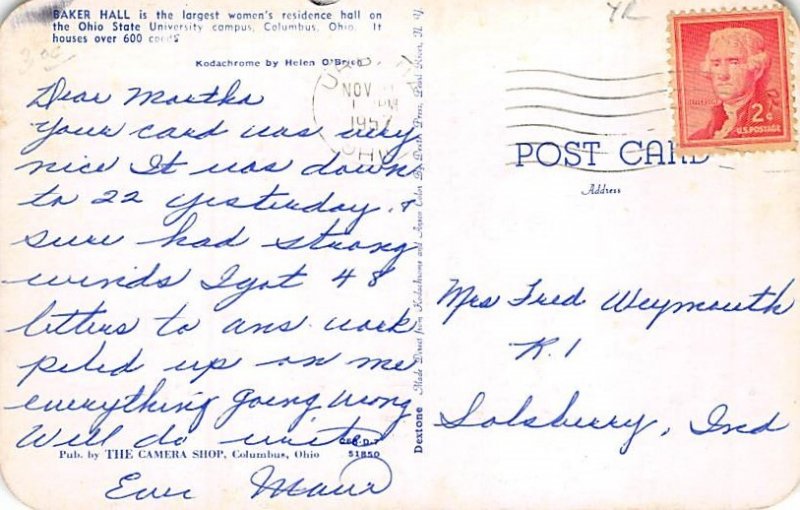 BAKER HALL is the largest women's residence hall on
the Ohio State University campus, Columbus, Ohio. It
houses over 600 coeds
Kodachrome by Helen O'Brien
NOV
1957
OHIO
2¢
U.S. POSTAGE
POST CARD
Address
Dear Martha
Your card was very
nice It was down
to 22 yesterday. &
sure had strong
winds I got 48
letters to ans work
piled up on me
everything going wrong
Will do write
Pub. by THE CAMERA SHOP, Columbus, Ohio
51850
Dextone
Made Direct from Kodachrome and Ansco Color by Dexter Press, Pearl River, N. Y.
Mrs Fred Weymouth
R. 1
Solsberry, Ind